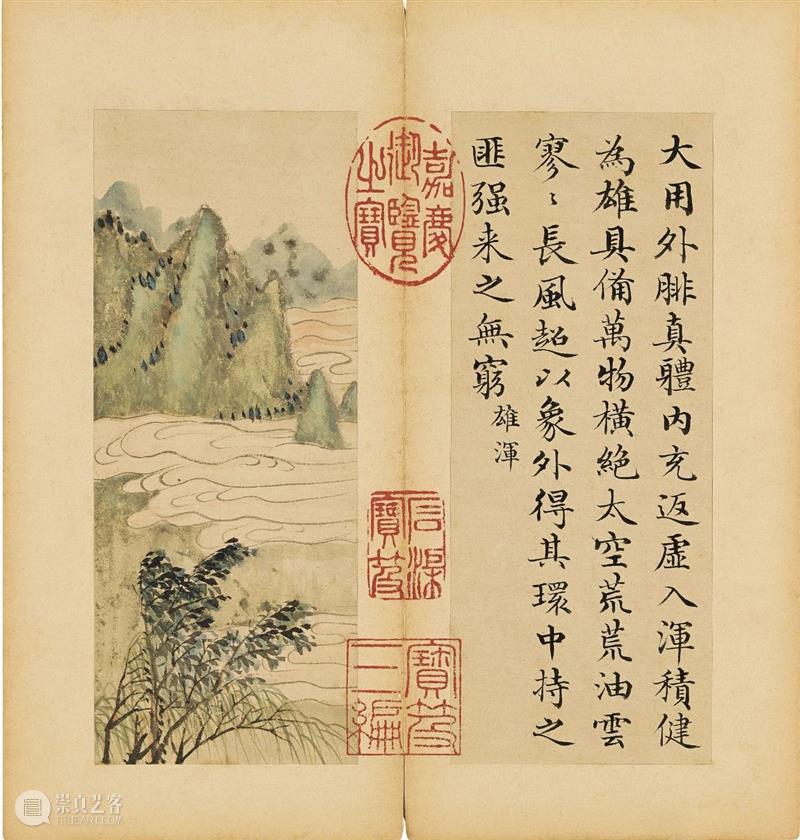 大用外腓真體内充返虛入渾積健
為雄具備萬物橫絶太空荒荒油雲
寥〻長風超以象外得其環中持之
匪强来之無窮
雄渾
嘉慶御覽之寶
石渠寶笈
寶笈三編
崇真艺客
TRUEART.COM